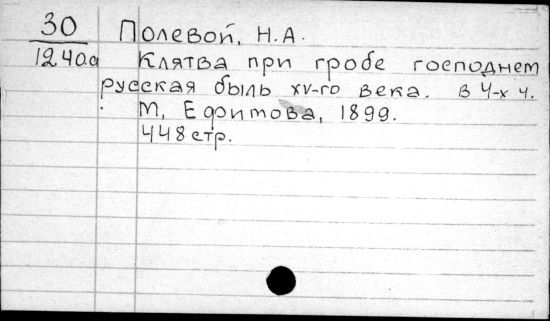 30 Полевой, Н.А.
1240а Клятва при гробе господнем
русская быль XV-го века. В 4-х ч.
М, Ефимова, 1899.
448 стр.